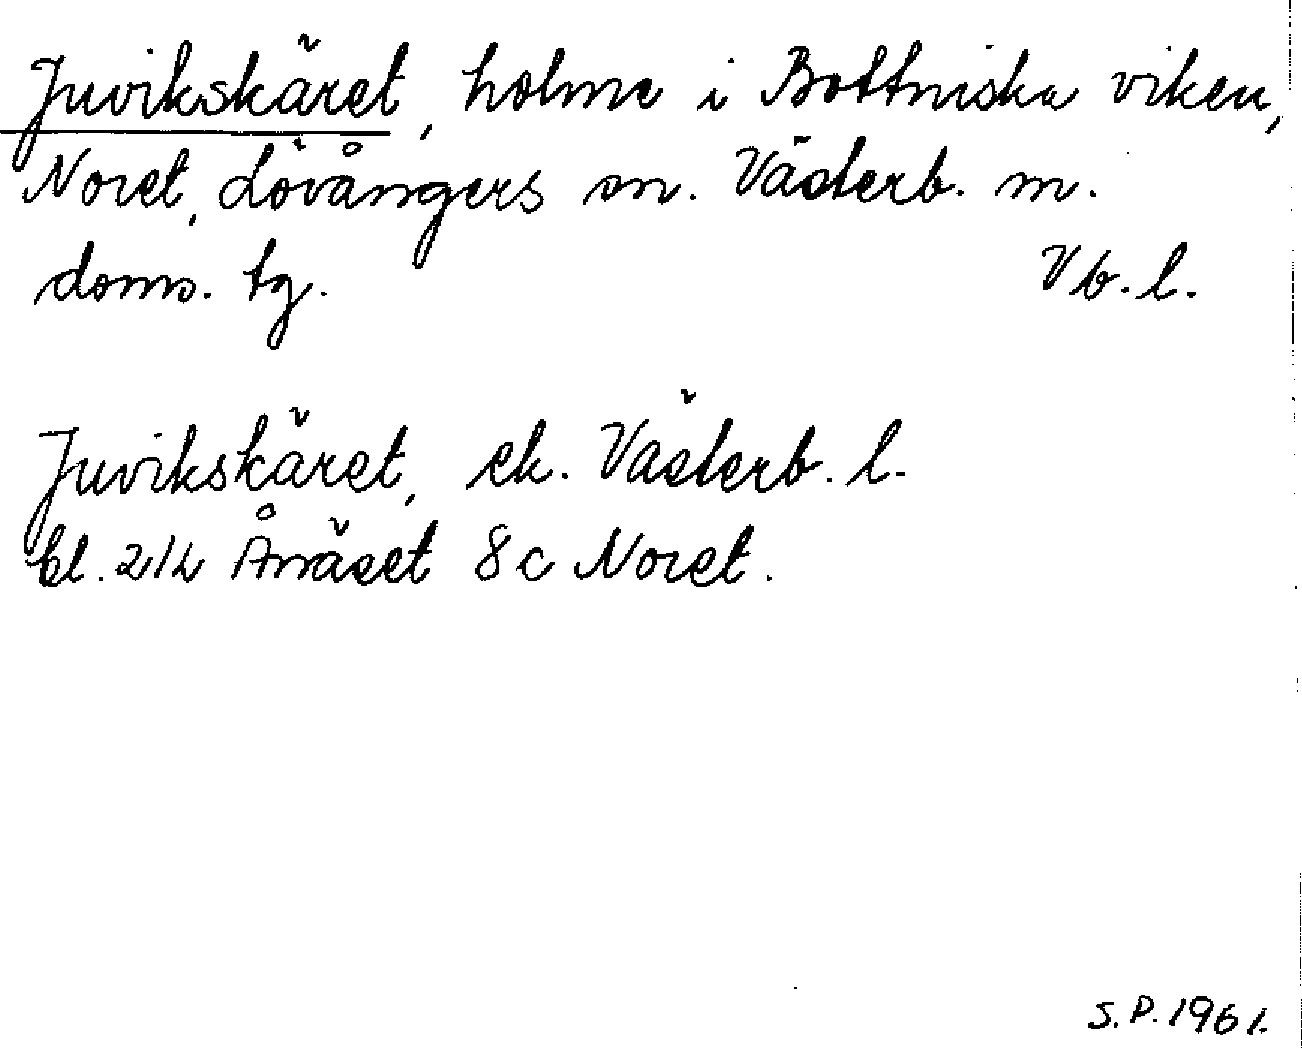 Juvikskäret, holme i Bottniska viken,
Noret, Lövångers sn. Västerb. m.
doms. tg. Vb. l.
Juvikskäret, ek. Västerb. l.
bl. 214 Ånäset 8c Noret.
S.P. 1961.